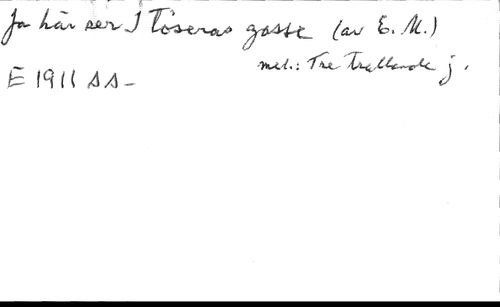 Ja här ser I Töseras gosse (av E. M.)
mel.: Tre trallande j.
E 1911 SS-